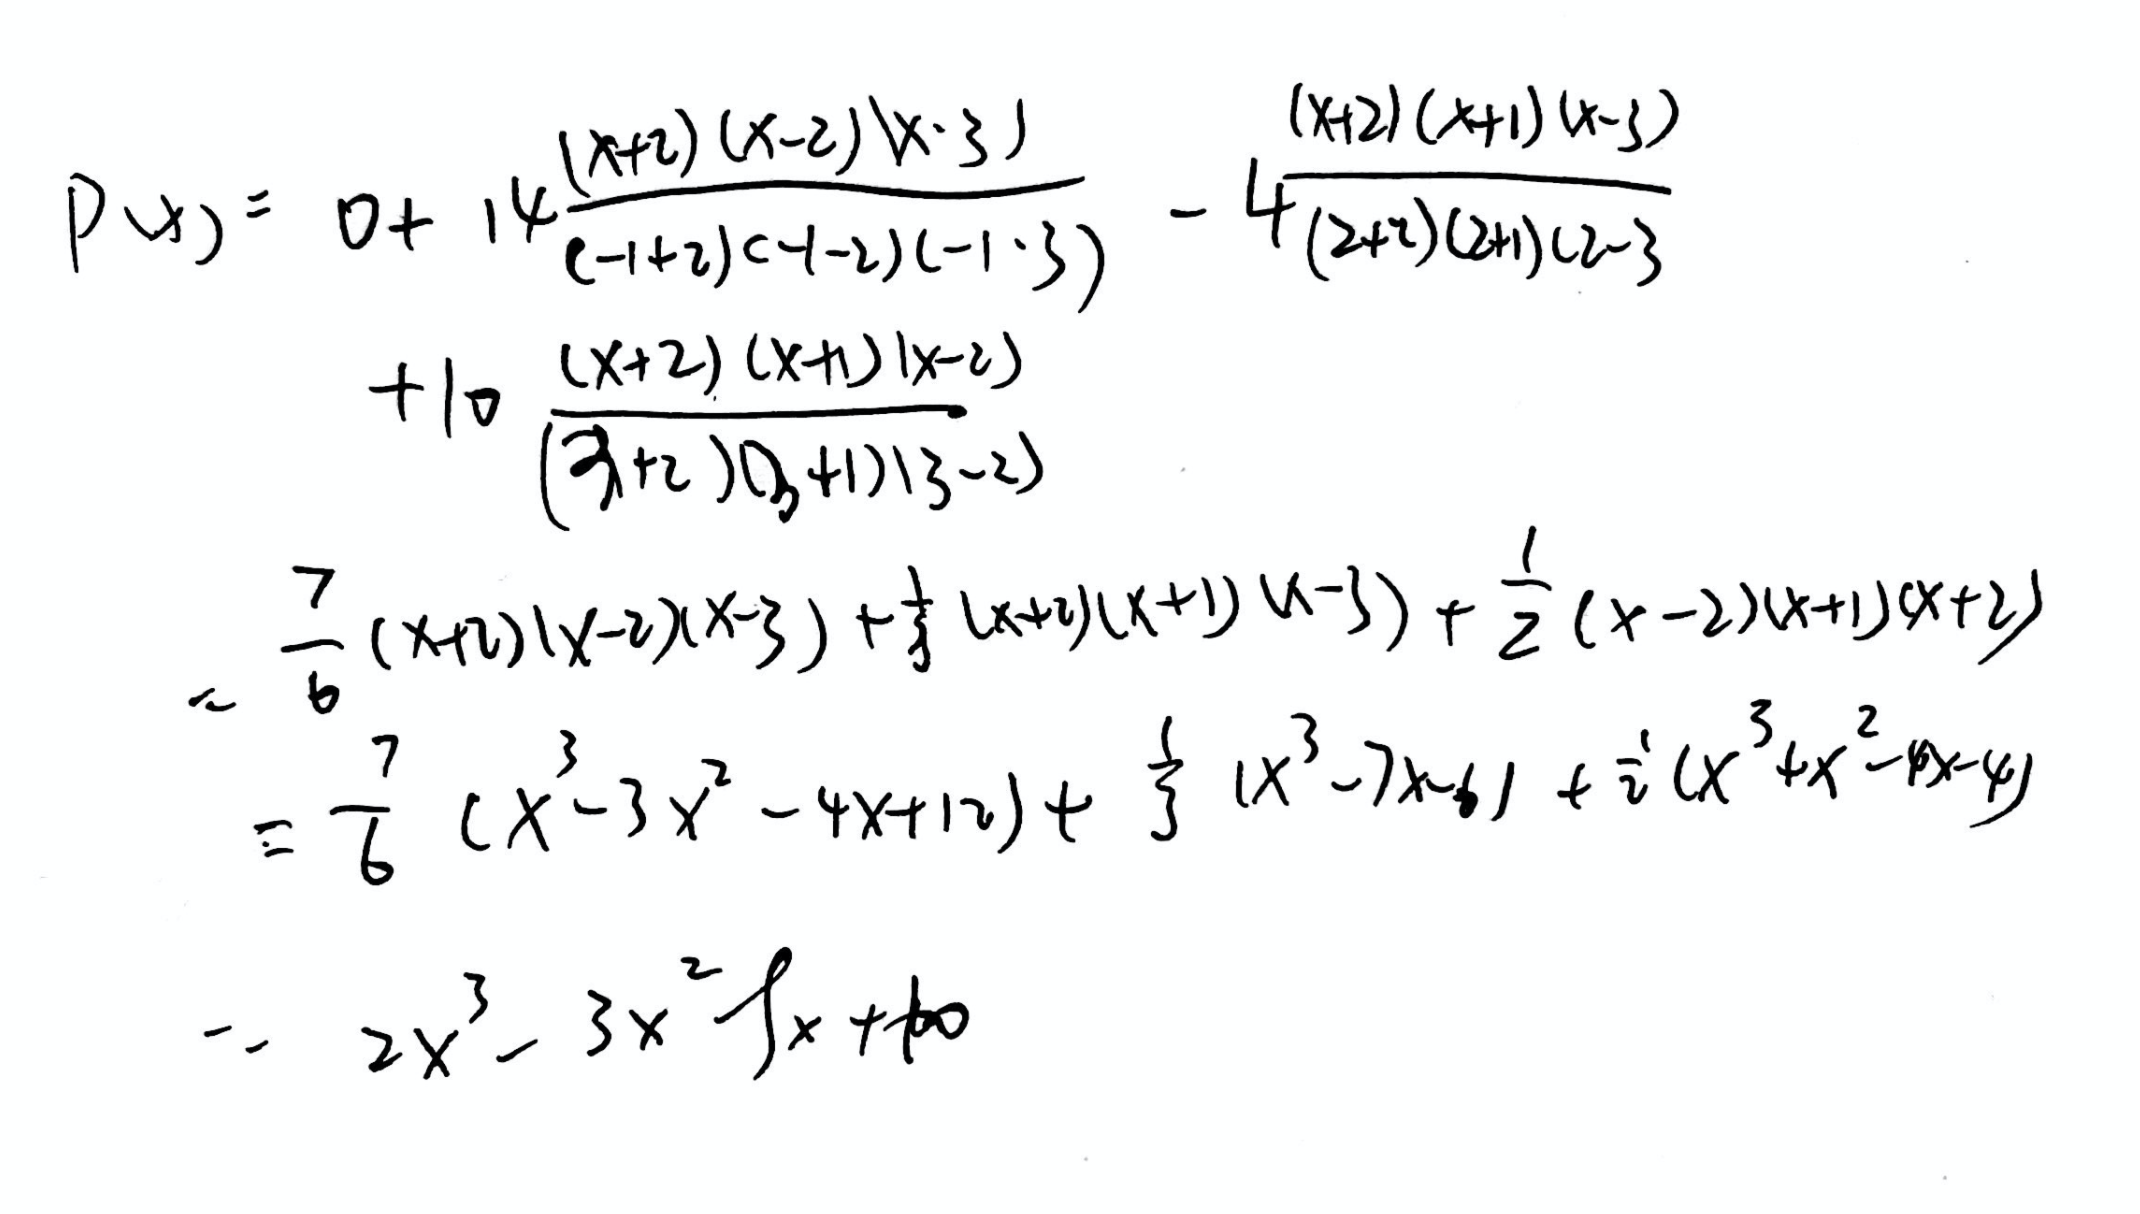 P(x) = 0 + 14 (x+2)(x-2)(x-3) / (-1+2)(-1-2)(-1-3) - 4 (x+2)(x+1)(x-3) / (2+2)(2+1)(2-3
+10 (x+2)(x+1)(x-2) / (3+2)(3+1)(3-2)
= 7/6 (x+2)(x-2)(x-3) + 1/3 (x+2)(x+1)(x-3) + 1/2 (x-2)(x+1)(x+2)
= 7/6 (x³-3x²-4x+12) + 1/3 (x³-7x-6) + 1/2 (x³+x²-4x-4)
= 2x³ - 3x² - 9x + 10